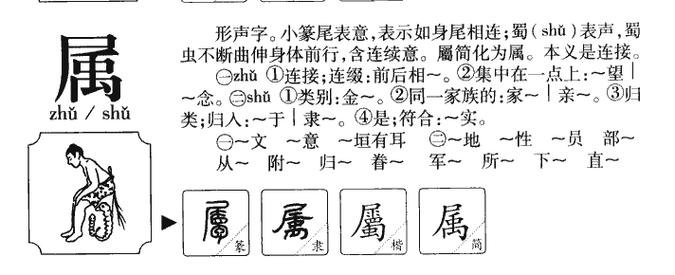 属
zhǔ / shǔ
形声字。小篆尾表意,表示如身尾相连;蜀(shǔ)表声,蜀
虫不断曲伸身体前行,含连续意。屬简化为属。本义是连接。
㊀zhǔ ①连接;连缀:前后相～。②集中在一点上:～望|
～念。㊁shǔ ①类别:金～。②同一家族的:家～|亲～。③归
类;归入:～于|隶～。④是;符合:～实。
㊀～文 ～意 ～垣有耳 ㊁～地 ～性 ～员 部～
从～ 附～ 归～ 眷～ 军～ 所～ 下～ 直～
屬 篆 属 隶 屬 楷 属 简